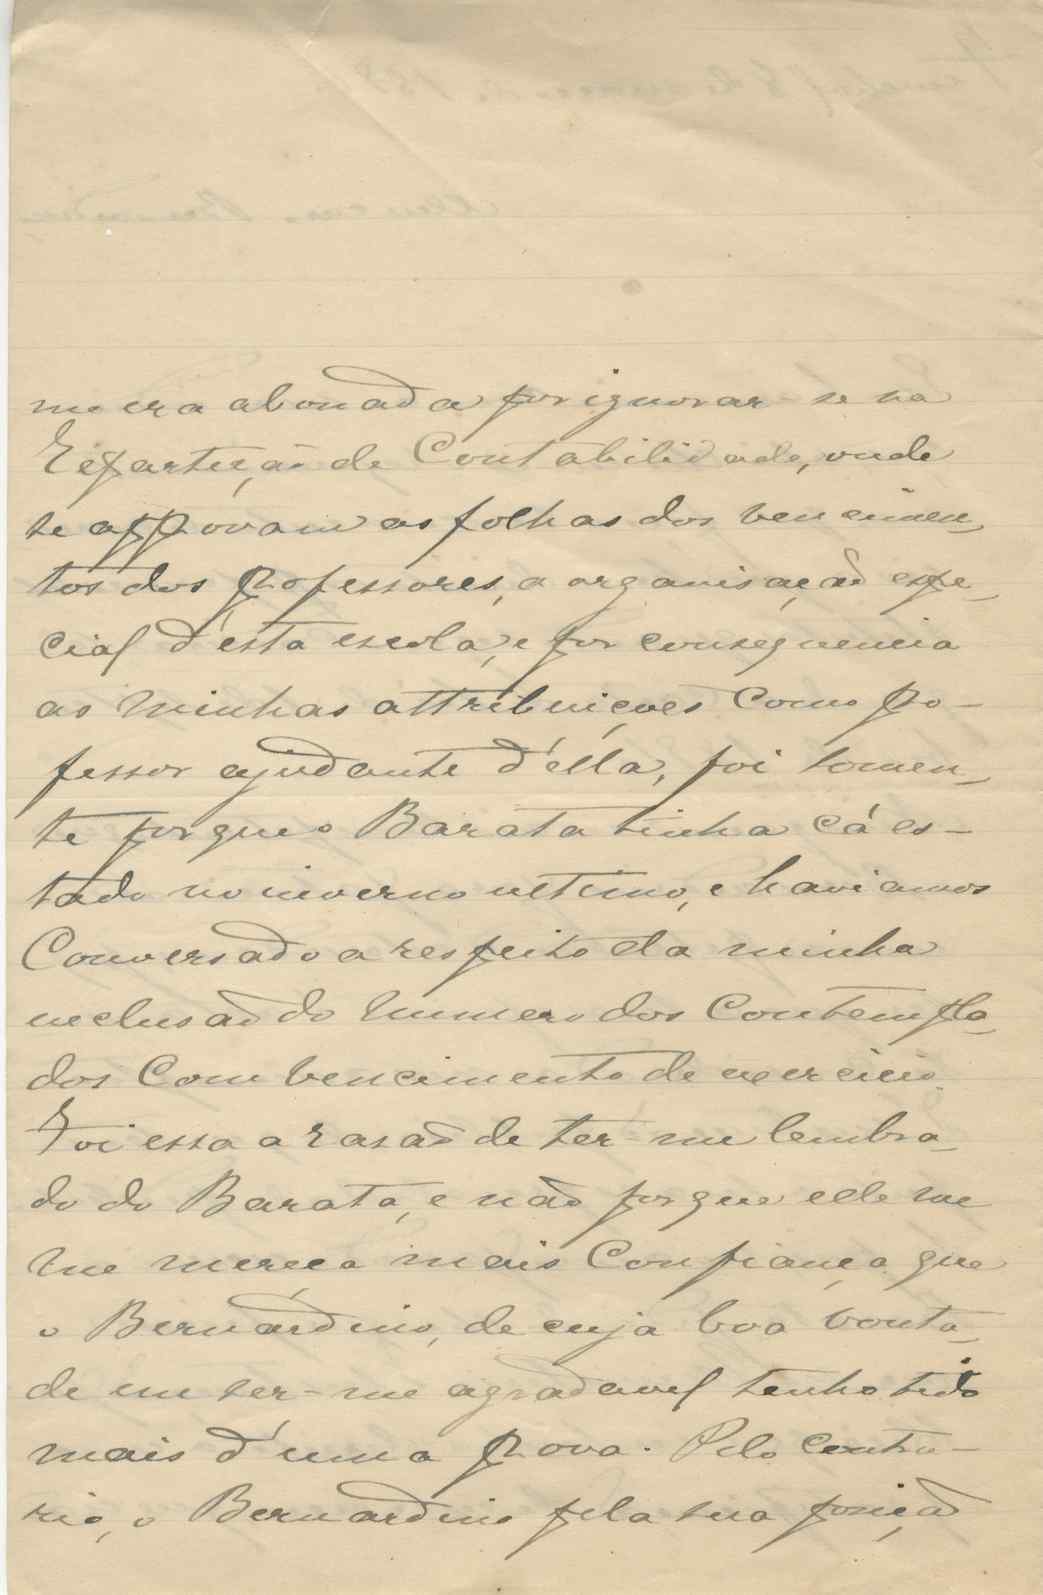 me era abonada por ignorar-se na
Repartição de Contabilidade, onde
se approvam as folhas dos vencimen-
tos dos professores, a organisação espe-
cial d'esta escola, e por consequencia
as minhas attribuições como pro-
fessor ajudante d'ella, foi somen-
te porque o Barata tinha cá es-
tado no inverno ultimo, e haviamos
conversado a respeito da minha
exclusão do numero dos contempla-
dos com vencimento de exercicio.
Foi essa a rasão de ter-me lembra-
do do Barata, e não porque elle me
me mereça mais confiança que
o Bernardino, de cuja boa vonta-
de em ser-me agradavel tenho tido
mais d'uma prova. Pelo contra-
rio, o Bernardino pela sua posição